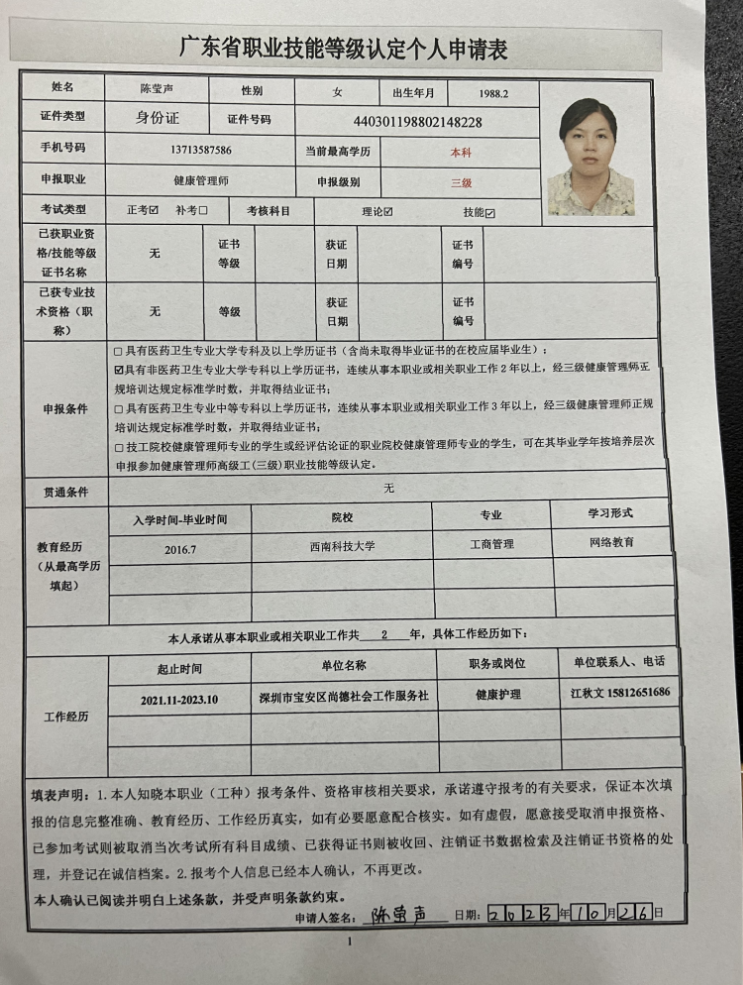 广东省职业技能等级认定个人申请表
姓名 陈莹声 性别 女 出生年月 1988.2
证件类型 身份证 证件号码 440301198802148228
手机号码 13713587586 当前最高学历 本科
申报职业 健康管理师 申报级别 三级
考试类型 正考☑ 补考☐ 考核科目 理论☑ 技能☑
已获职业资格/技能等级证书名称 无 证书等级 获证日期 证书编号
已获专业技术资格（职称） 无 等级 获证日期 证书编号
申报条件
☐具有医药卫生专业大学专科及以上学历证书（含尚未取得毕业证书的在校应届毕业生）；
☑具有非医药卫生专业大学专科以上学历证书，连续从事本职业或相关职业工作2年以上，经三级健康管理师正
规培训达规定标准学时数，并取得结业证书；
☐具有医药卫生专业中等专科以上学历证书，连续从事本职业或相关职业工作3年以上，经三级健康管理师正规
培训达规定标准学时数，并取得结业证书；
☐技工院校健康管理师专业的学生或经评估论证的职业院校健康管理师专业的学生，可在其毕业学年按培养层次
申报参加健康管理师高级工(三级)职业技能等级认定。
贯通条件 无
教育经历（从最高学历填起） 入学时间-毕业时间 院校 专业 学习形式
2016.7 西南科技大学 工商管理 网络教育
本人承诺从事本职业或相关职业工作共 2 年，具体工作经历如下：
工作经历 起止时间 单位名称 职务或岗位 单位联系人、电话
2021.11-2023.10 深圳市宝安区尚德社会工作服务社 健康护理 江秋文 15812651686
填表声明：1.本人知晓本职业（工种）报考条件、资格审核相关要求，承诺遵守报考的有关要求，保证本次填
报的信息完整准确、教育经历、工作经历真实，如有必要愿意配合核实。如有虚假，愿意接受取消申报资格、
已参加考试则被取消当次考试所有科目成绩、已获得证书则被收回、注销证书数据检索及注销证书资格的处
理，并登记在诚信档案。2.报考个人信息已经本人确认，不再更改。
本人确认已阅读并明白上述条款，并受声明条款约束。
申请人签名：陈莹声 日期：2023年10月26日
1